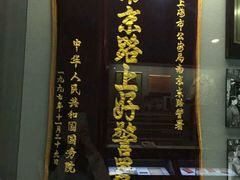 上海市公安局南京东路警署
南京路上好警署
中华人民共和国国务院
一九九七年十一月二十五日